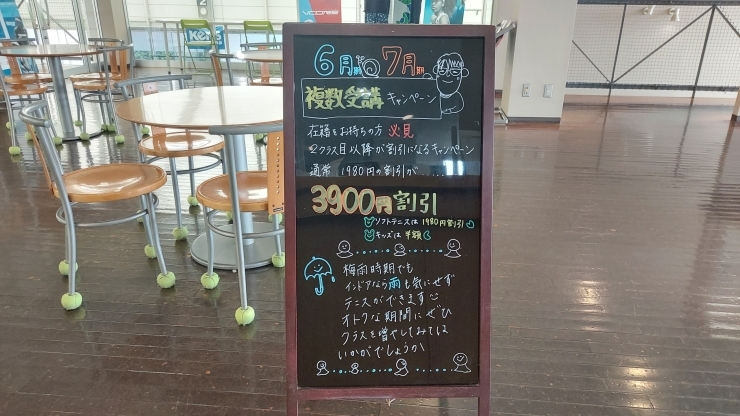 VCORE
Kele
6月期 7月期
複数受講 キャンペーン
在籍をお持ちの方 必見
2クラス目以降が割引になるキャンペーン
通常 1980円の割引が....
3900円割引
ソフトテニスは1980円割引
キッズは半額
梅雨時期でも
インドアなら雨も気にせず
テニスができます
オトクな期間にぜひ
クラスを増やしてみては
いかがでしょうか